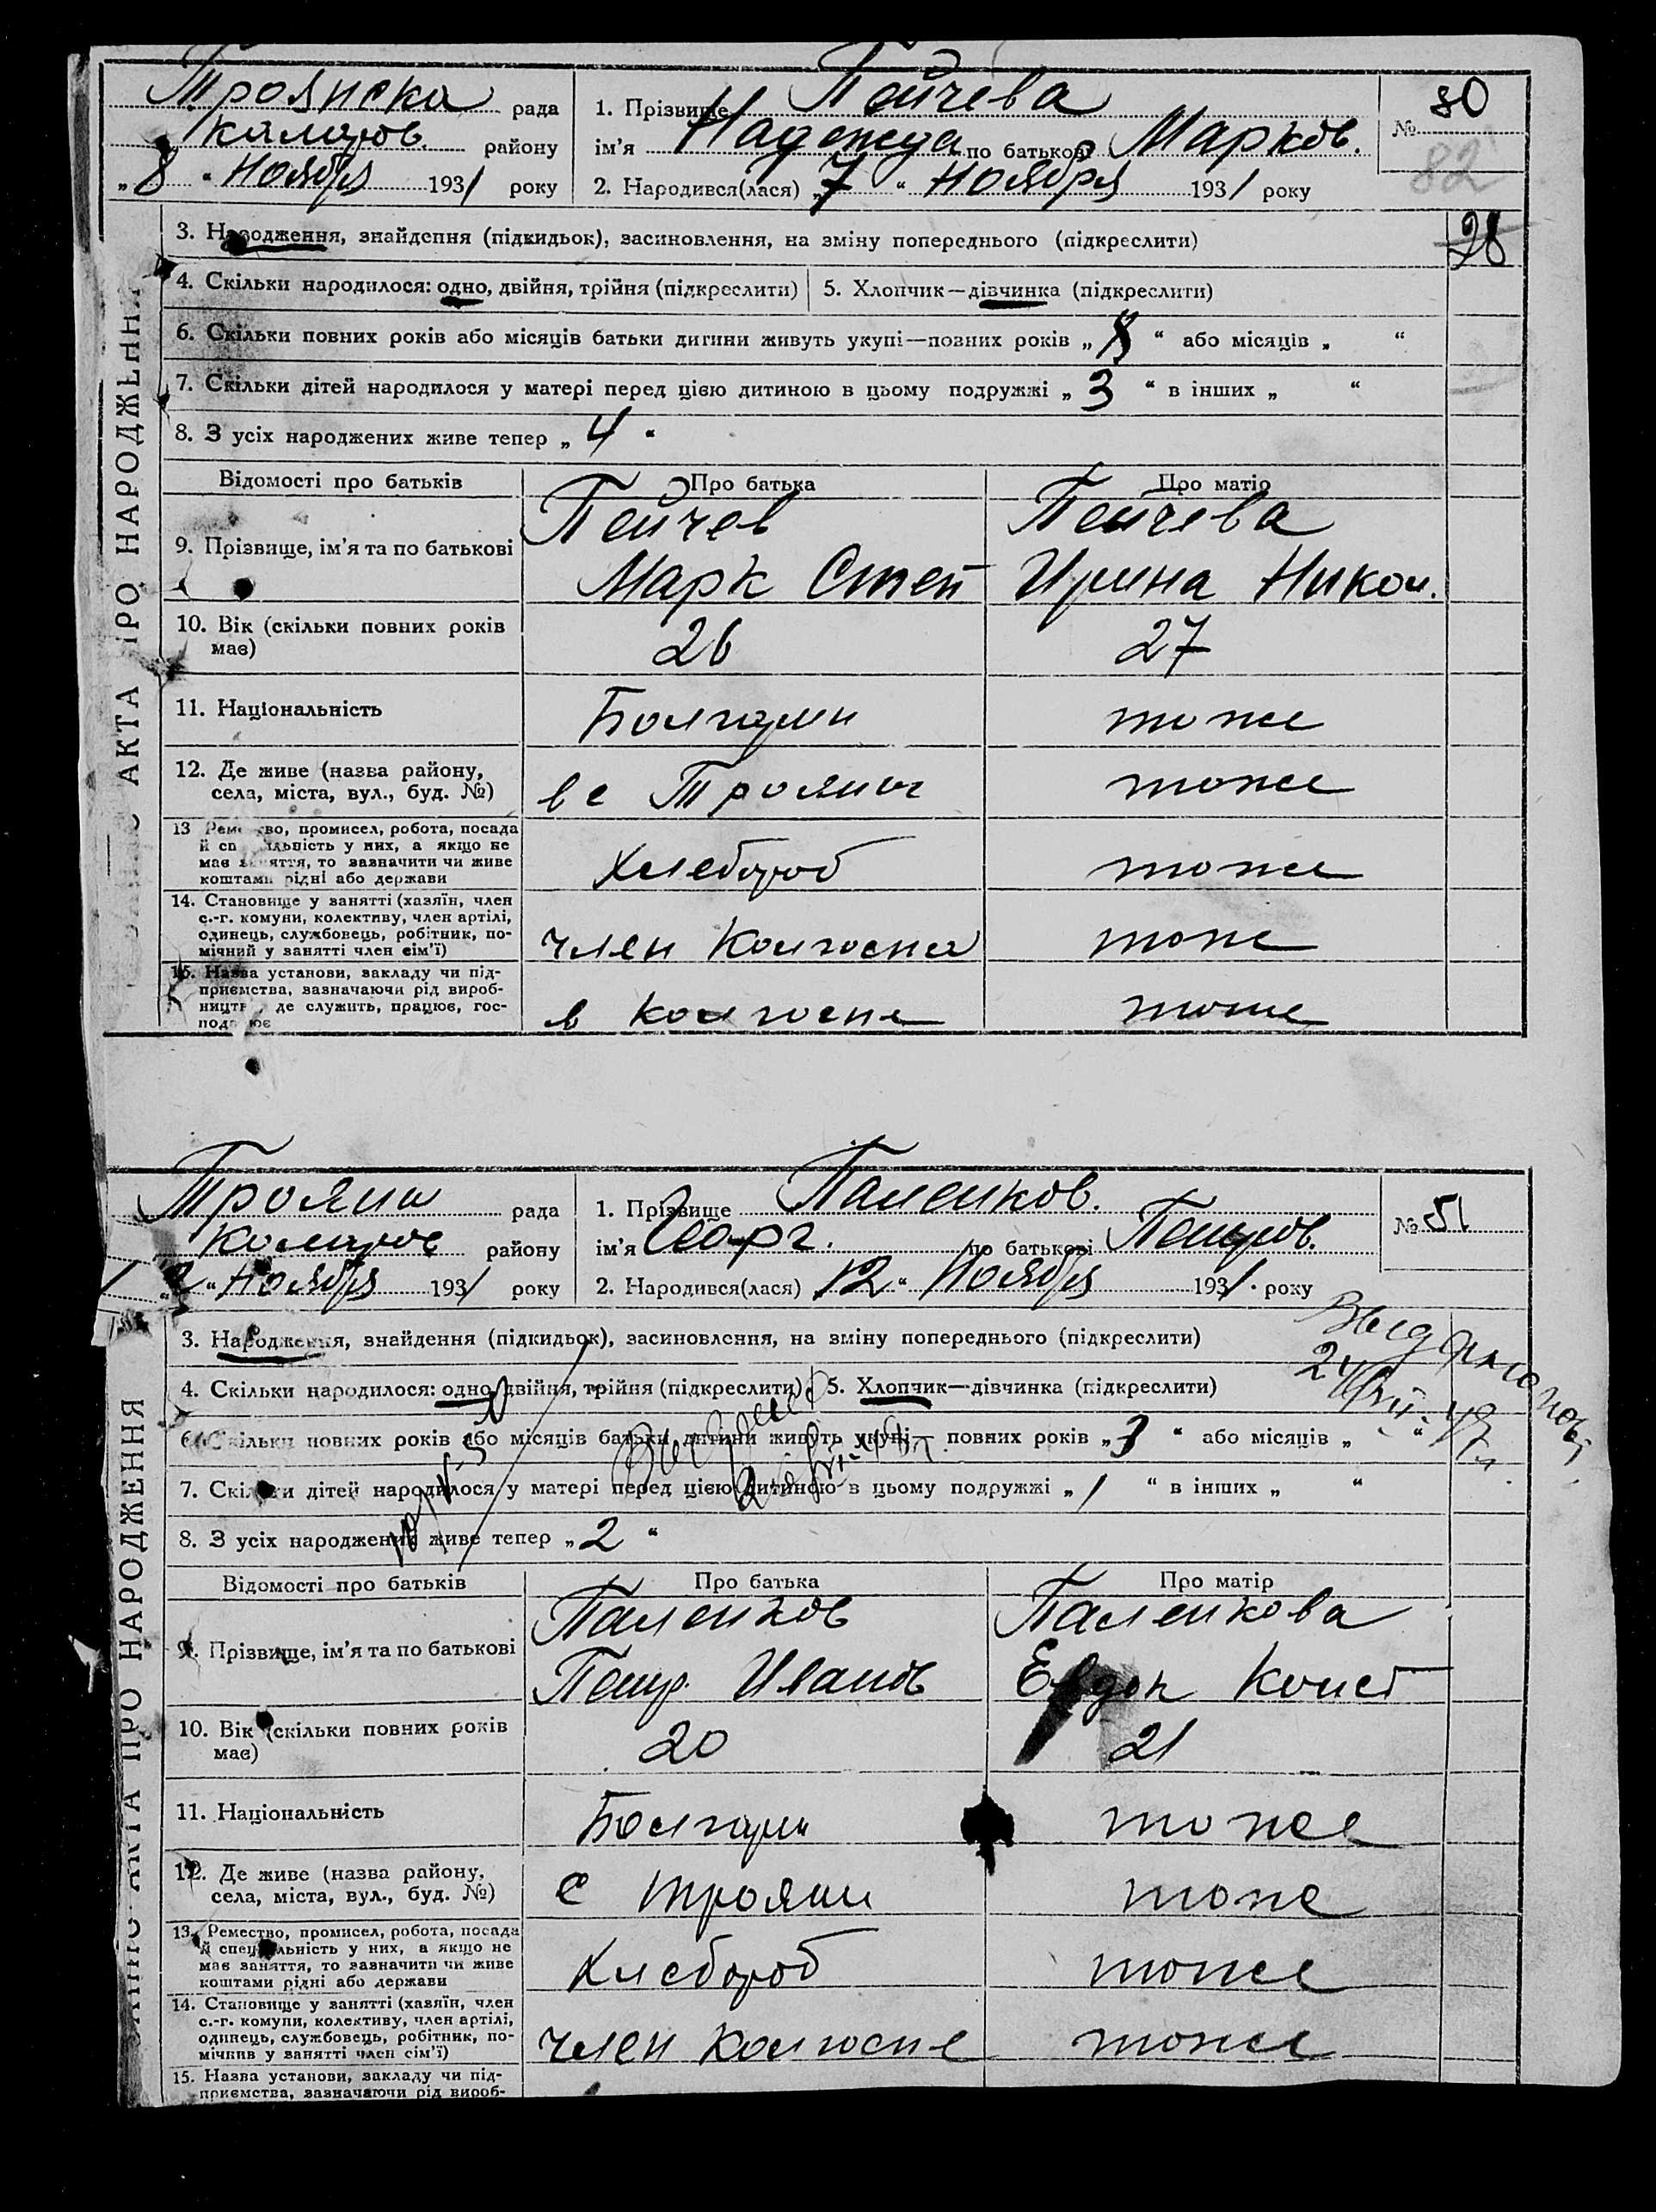 Троянска рада
Коларов. району
„8“ Ноября 1931 року
1. Прізвище Пейчева
ім'я Надежда по батькові Марков.
2. Народився(лася) „7“ Ноября 1931 року
№ 50
82
28
ЗАПИС АКТА ПРО НАРОДЖЕННЯ
3. Народження, знайдення (підкидьок), засиновлення, на зміну попереднього (підкреслити)
4. Скільки народилося: одно, двійня, трійня (підкреслити) 5. Хлопчик—дівчинка (підкреслити)
6. Скільки повних років або місяців батьки дитини живуть укупі—повних років „8“ або місяців „ “
7. Скільки дітей народилося у матері перед цією дитиною в цьому подружжі „3“ в інших „ “
8. З усіх народжених живе тепер „4“
Відомості про батьків Про батька Про матір
9. Прізвище, ім'я та по батькові Пейчев Марк Степ Пейчева Ирина Никол.
10. Вік (скільки повних років має) 26 27
11. Національність Болгары тоже
12. Де живе (назва району, села, міста, вул., буд. №) в с Трояны тоже
13 Ремество, промисел, робота, посада й спеціяльність у них, а якщо не має заняття, то зазначити чи живе коштами рідні або держави Хлебороб тоже
14. Становище у занятті (хазяїн, член с.-г. комуни, колективу, член артілі, одинець, службовець, робітник, помічний у занятті член сім'ї) член Колгоспа тоже
15. Назва установи, закладу чи підприємства, зазначаючи рід виробництва, де служить, працює, господарює в колгоспе тоже
Троян рада
Коларов району
Ноября 1931 року
1. Прізвище Паленков.
ім'я Георг. по батькові Петров.
2. Народився(лася) 12“ Ноября 1931. року
№ 51
ЗАПИС АКТА ПРО НАРОДЖЕННЯ
3. Народження, знайдення (підкидьок), засиновлення, на зміну попереднього (підкреслити)
4. Скільки народилося: одно, двійня, трійня (підкреслити) 5. Хлопчик—дівчинка (підкреслити)
6. Скільки повних років або місяців батьки дитини живуть укупі— повних років „3“ або місяців „ “
7. Скільки дітей народилося у матері перед цією дитиною в цьому подружжі „1“ в інших „ “
8. З усіх народжених живе тепер „2“
Відомості про батьків Про батька Про матір
9. Прізвище, ім'я та по батькові Паленков Петр. Иванов Паленкова Евдок Конст
10. Вік (скільки повних років має) 20 21
11. Національність Болгары тоже
12. Де живе (назва району, села, міста, вул., буд. №) с Трояны тоже
13. Ремество, промисел, робота, посада й спеціяльність у них, а якщо не має заняття, то зазначити чи живе коштами рідні або держави Хлебороб тоже
14. Становище у занятті (хазяїн, член с.-г. комуни, колективу, член артілі, одинець, службовець, робітник, помічнив у занятті член сім'ї) член Колгоспе тоже
15. Назва установи, закладу чи підприємства, зазначаючи рід вироб-